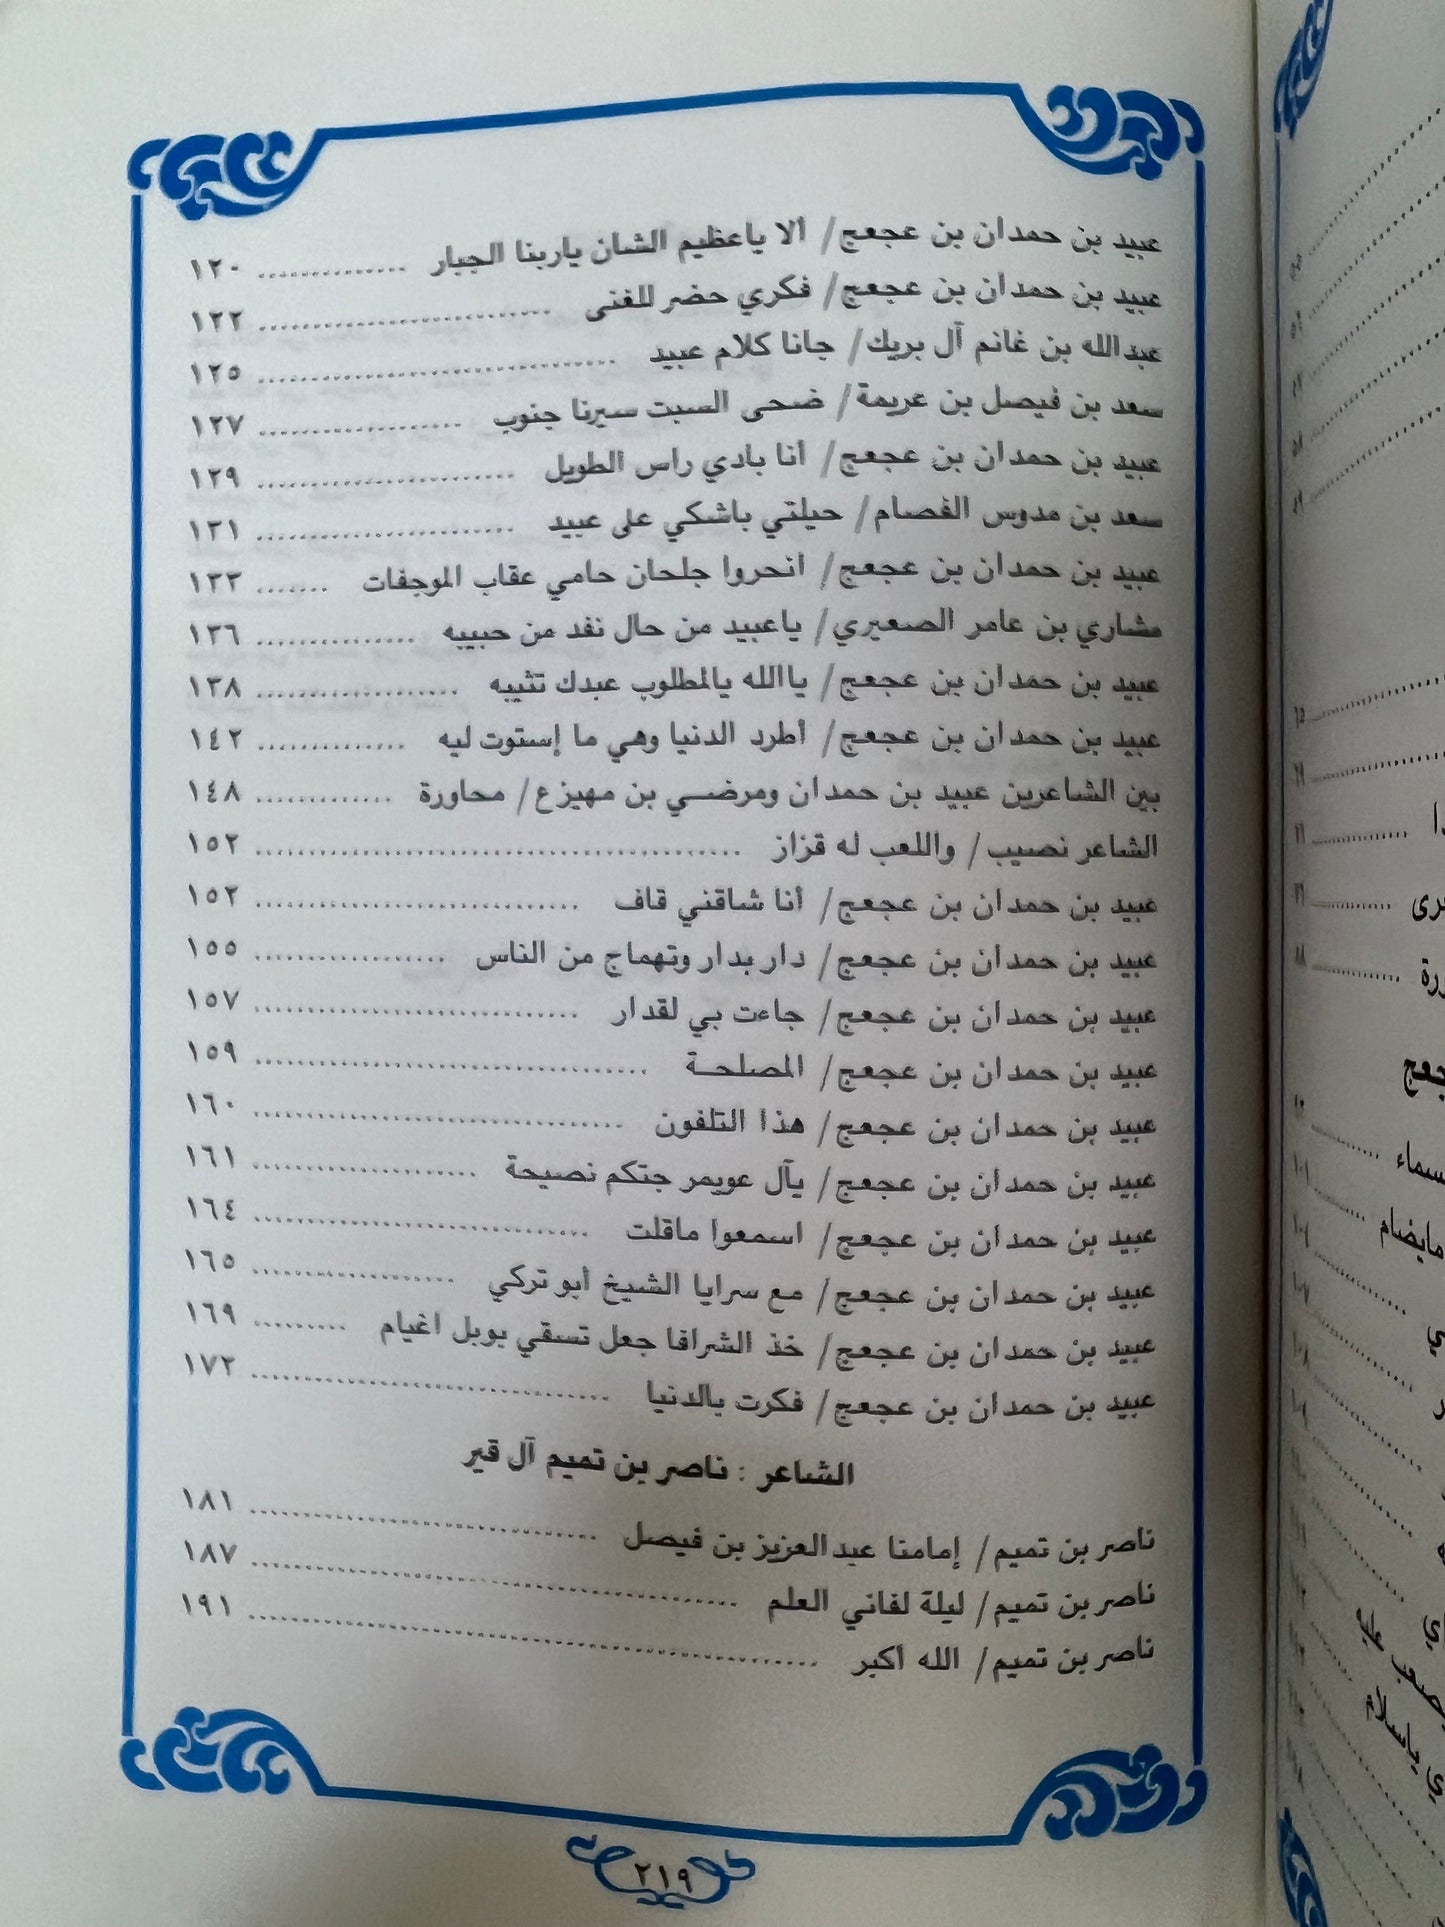 عبيد بن حمدان بن عجعج/ ألا ياعظيم الشان ياربنا الجبار ............... ١٢٠
عبيد بن حمدان بن عجعج/ فكري حضر للغنى ............................. ١٢٢
عبدالله بن غانم آل بريك/ جانا كلام عبيد .................................... ١٢٥
سعد بن فيصل بن عريمة/ ضحى السبت سيرنا جنوب .................... ١٢٧
عبيد بن حمدان بن عجعج/ أنا بادي راس الطويل ......................... ١٢٩
سعد بن مدوس الفصام/ حيلتي باشكي على عبيد ......................... ١٣١
عبيد بن حمدان بن عجعج/ انحروا جلحان حامي عقاب الموجفات ....... ١٣٣
مشاري بن عامر الصعيري/ ياعبيد من حال نفد من حبيبه ............... ١٣٦
عبيد بن حمدان بن عجعج/ ياالله يالمطلوب عبدك تثيبه .................... ١٣٨
عبيد بن حمدان بن عجعج/ أطرد الدنيا وهي ما إستوت ليه .............. ١٤٢
بين الشاعرين عبيد بن حمدان ومرضي بن مهيزع/ محاورة ............. ١٤٨
الشاعر نصيب/ واللعب له قزاز ............................................... ١٥٢
عبيد بن حمدان بن عجعج/ أنا شاقني قاف ................................ ١٥٢
عبيد بن حمدان بن عجعج/ دار بدار وتهماج من الناس ................... ١٥٥
عبيد بن حمدان بن عجعج/ جاءت بي لقدار ................................ ١٥٧
عبيد بن حمدان بن عجعج/ المصلحة ...................................... ١٥٩
عبيد بن حمدان بن عجعج/ هذا التلفون .................................... ١٦٠
عبيد بن حمدان بن عجعج/ يآل عويمر جتكم نصيحة ...................... ١٦١
عبيد بن حمدان بن عجعج/ اسمعوا ماقلت ................................. ١٦٤
عبيد بن حمدان بن عجعج/ مع سرايا الشيخ أبو تركي .................... ١٦٥
عبيد بن حمدان بن عجعج/ خذ الشرافا جعل تسقي بوبل اغيام ......... ١٦٩
عبيد بن حمدان بن عجعج/ فكرت بالدنيا ................................... ١٧٢
الشاعر : ناصر بن تميم آل قير
ناصر بن تميم/ إمامنا عبدالعزيز بن فيصل .................................. ١٨١
ناصر بن تميم/ ليلة لفاني العلم ................................................ ١٨٧
ناصر بن تميم/ الله أكبر ........................................................ ١٩١
٢١٩